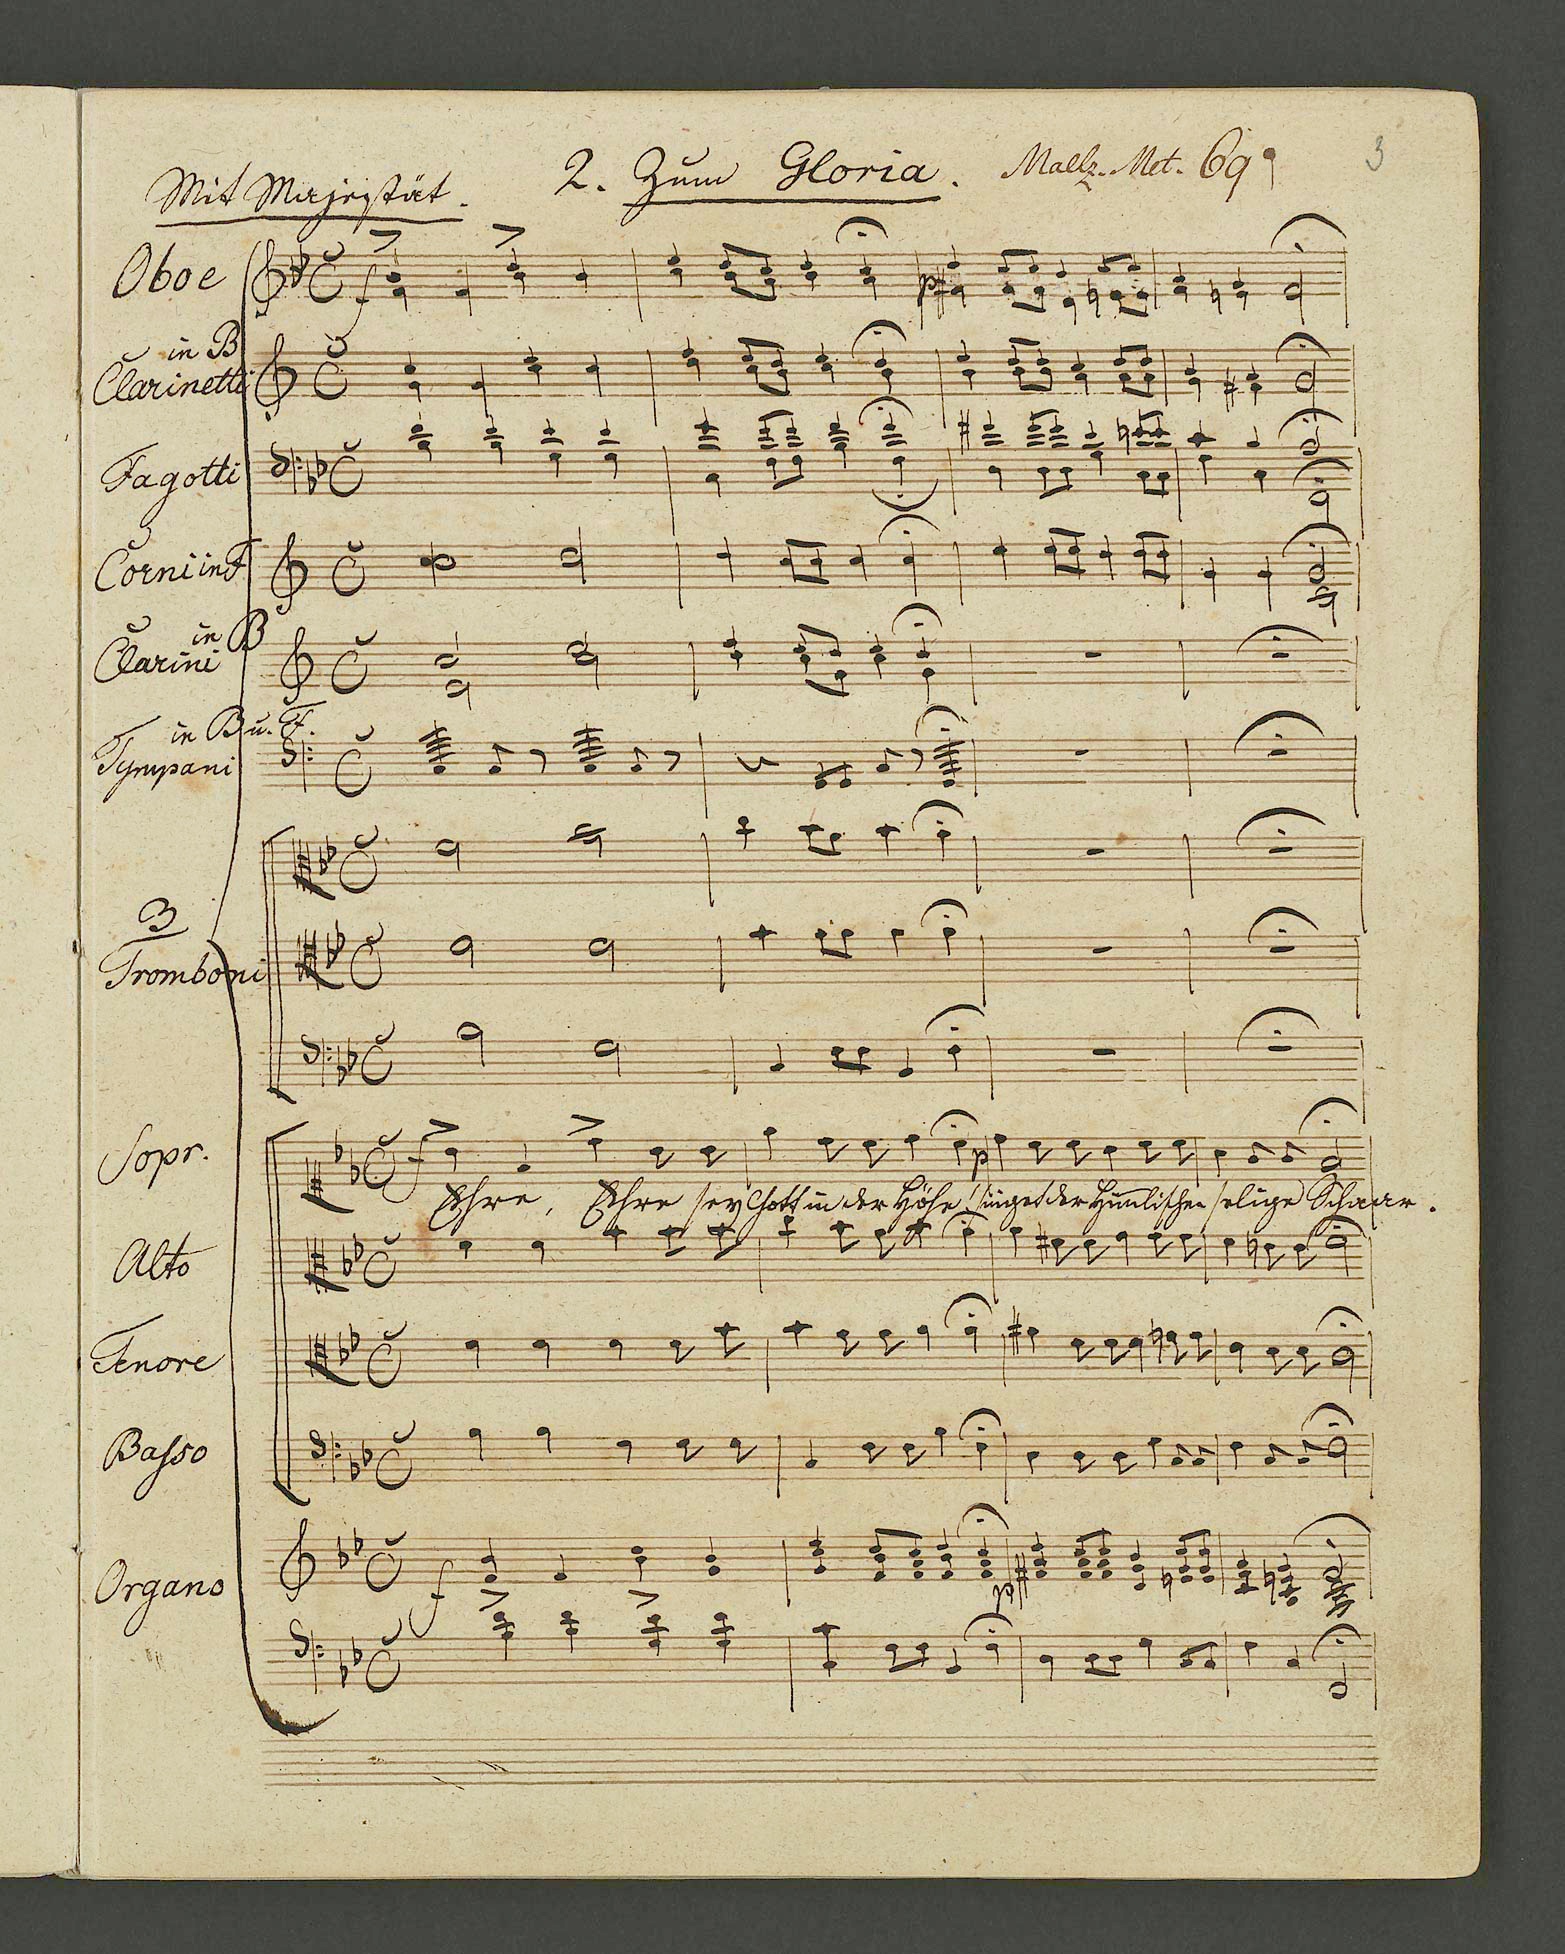 Mit Majestät. 2. Zum Gloria. Mallz. Met. 69 3
Oboe f p
in B
Clarinetti
Fagotti
Corni in F
in B
Clarini
in B u. F.
Tympani
3
Tromboni
Sopr. f p
Ehre, Ehre sey Gott in der Höhe! singet der Himlischen selige Schaar.
Alto
Tenore
Basso
Organo f p